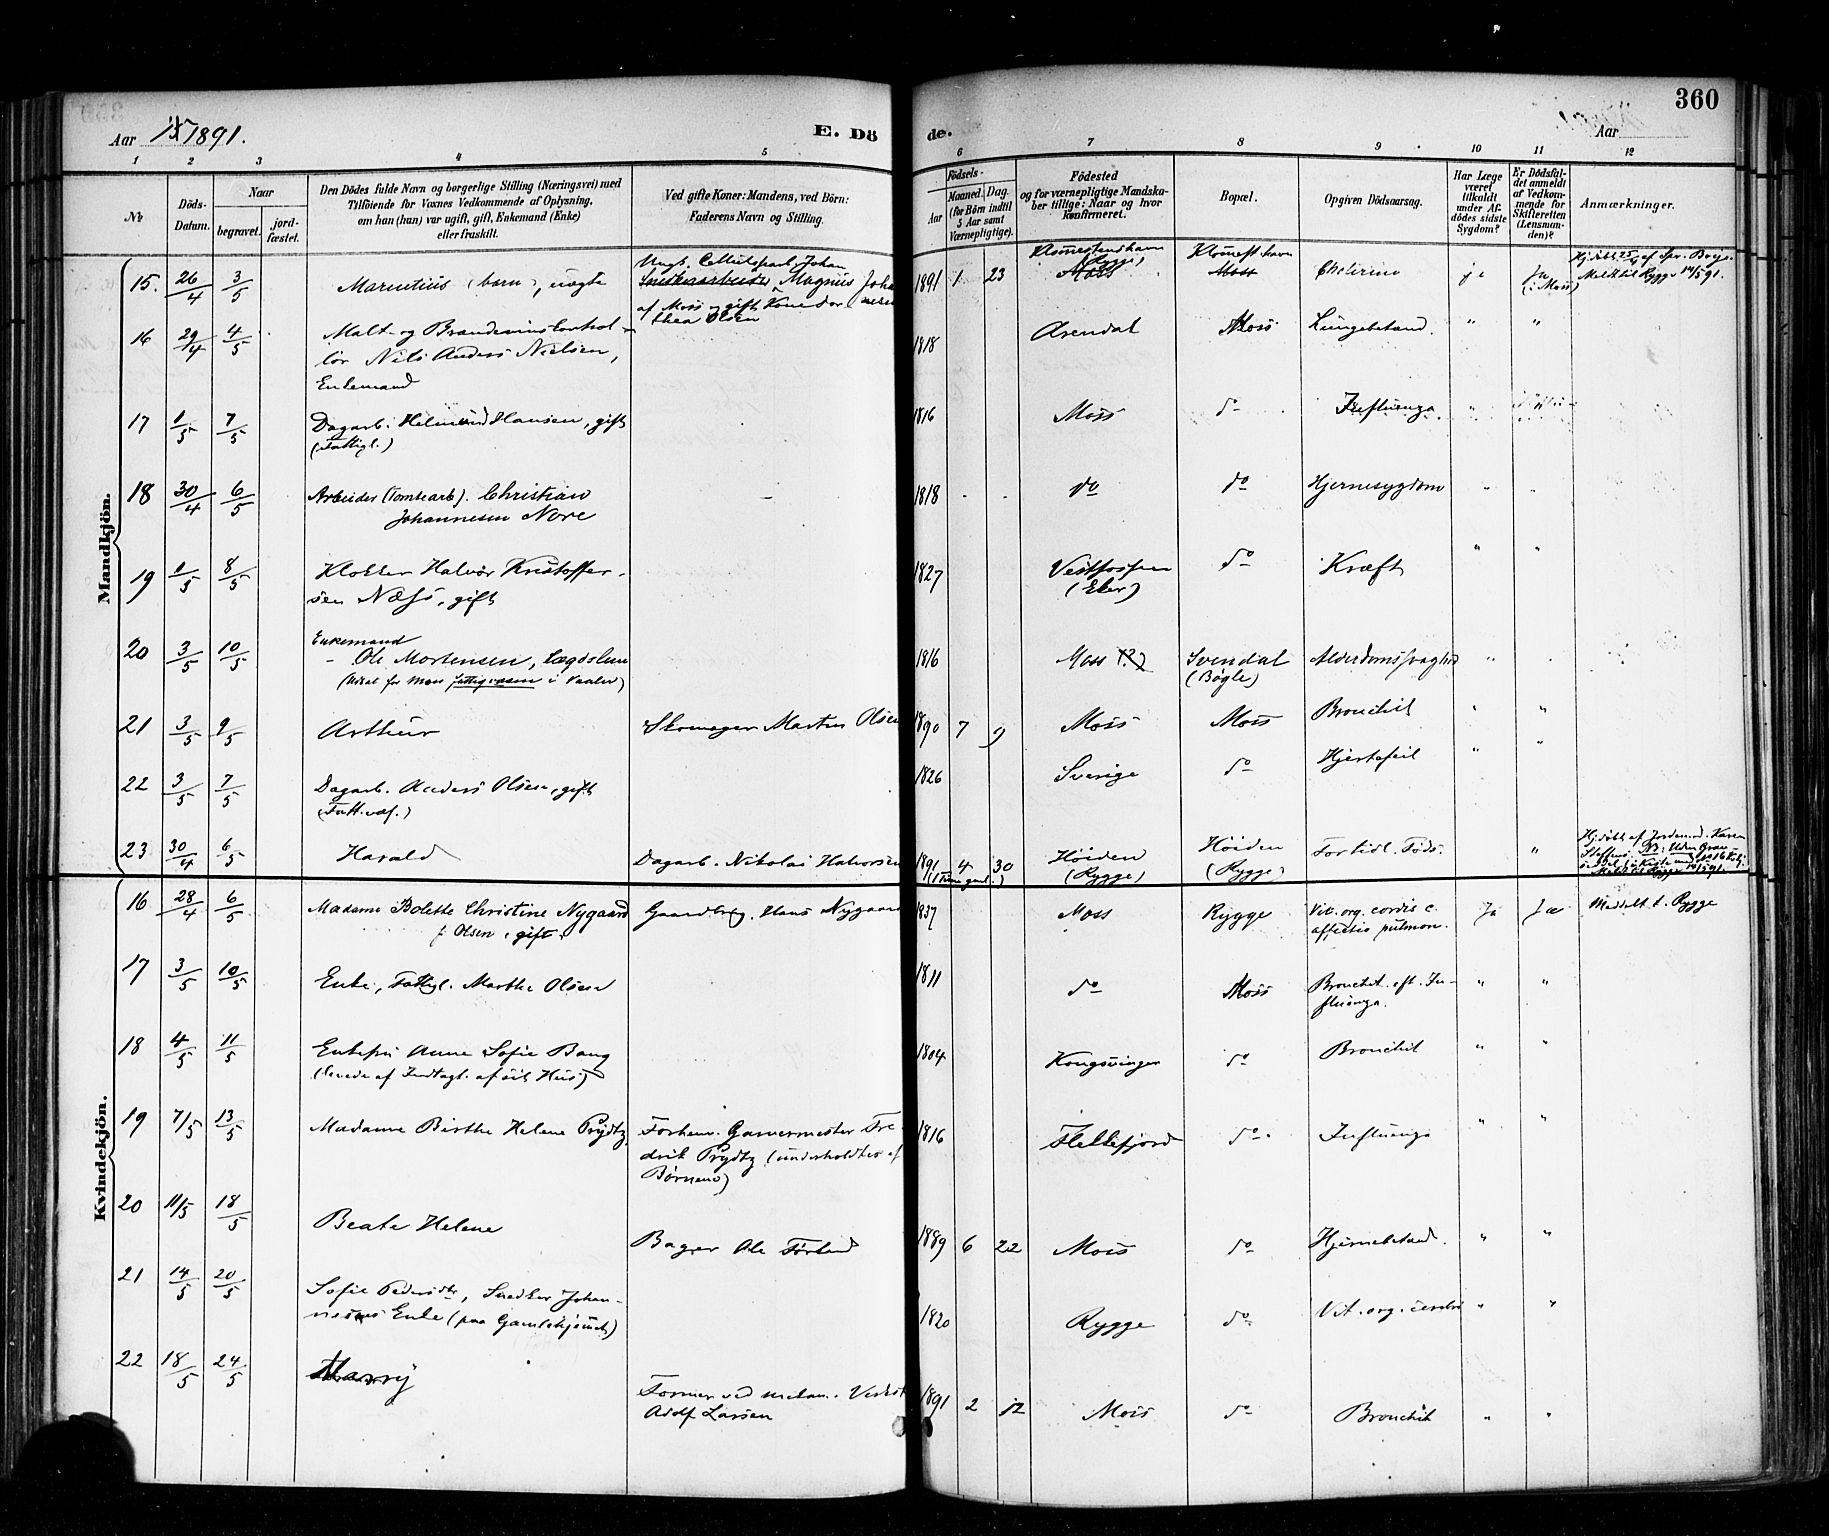 360
Aar 1891.
E. Dö
de.
Aar
1 2 3 4 5 6 7 8 9 10 11 12
No
Döds-Datum.
Naar
begravet.
jord-fæstet.
Den Dödes fulde Navn og borgerlige Stilling (Næringsvei) med
Tilföiende for Voxnes Vedkommende af Oplysning,
om han (hun) var ugift, gift, Enkemand (Enke)
eller fraskilt.
Ved gifte Koner: Mandens, ved Börn:
Faderens Navn og Stilling.
Födsels-
Aar
Maaned. Dag.
(for Börn indtil
5 Aar samt
Værnepligtige).
Födested
og for værnepligtige Mandska-
ber tillige: Naar og hvor
konfirmeret.
Bopæl.
Opgiven Dödsaarsag.
Har Læge
været
tilkaldt
under Af-
dödes sidste
Sygdom?
Er Dödsfal-
det anmeldt
af Vedkom-
mende for
Skifteretten
(Lensman-
den)?
Anmærkninger.
Mandkjön.
15. 26/4 3/5 (barn), uægte
Ungk. Johan
Magnus Johannesen
af Moss og gift Kone Dorthea Olsen
1891 1 23 (Rygge) Moss Moss Ja (i Moss)
Meldt til Rygge 14/5 91.
16 29/4 4/5 Malt- og
Nils Anders Nielsen,
Enkemand
1818 Arendal Moss Lungebetænd. " "
17 1/5 7/5 Dagarb. Hansen, gift
(Fattigl.)
1816 Moss do Influenza "
18 30/4 6/5 Arbeider (Tomtearb). Christian
Johannesen Nore
1818 do do Hjernesygdom " "
19 1/5 8/5 Klokker Halvor Kristoffer-
sen Næss, gift
1827 Vestfossen
(Eker)
do Kræft " "
20 3/5 10/5 Enkemand
Ole Mortensen, Lægdslem
(Udsat for Moss fattigvæsen i Vaaler)
1816 Moss (?) Svendal
(Bøgle)
Alderdomssvaghed "
21 3/5 9/5 Arthur Skomager Martin Olsen 1890 7 9 Moss Moss Bronchit " "
22 3/5 7/5 Dagarb. Anders Olsen, gift
(Fatt.væs.)
1826 Sverige do Hjertefeil " "
23 30/4 6/5 Harald Dagarb. Nikolai Halvorsen 1891 4 30 Høiden
(Rygge)
Høiden
(Rygge)
For tidl. Føds. "
Hj.døbt af Jordemd. Karen
Steffens.
Kvindekjön.
16 28/4 6/5 Madame Bolette Christine Nygaard
f. Olsen, gift
Gaardbrg. Hans Nygaard 1837 Moss Rygge Vit. org. cordis c.
affectio pulmon.
Ja Ja Meddelt t. Rygge
17 3/5 10/5 Enke, Fattigl. Marthe Olsen 1811 do Moss Bronchit. eft. In-
fluenza.
" "
18 4/5 11/5 Enkefru Anne Sofie Bang
(Levede af Indtægt. af sit Hus)
1804 Kongsvinger do Bronchit " "
19 7/5 13/5 Madame Birthe Helene Prydtz Forhenv. Garvermester Fre-
drik Prydtz (underholdtes af
Børnene)
1816 Flekkefjord do Influenza " "
20 11/5 18/5 Beate Helene Bager Ole Førlund 1889 6 22 Moss do Hjernebetænd. " "
21 14/5 20/5 Sofie Pedersdtr, Snedker Johan-
nessens Enke (paa Gamlehjemmet)
1820 Rygge do Vit. org. cordis " "
22 18/5 24/5 Former ved mekan. Verkst.
Adolf Larsen
1891 2 12 Moss do Bronchit " "